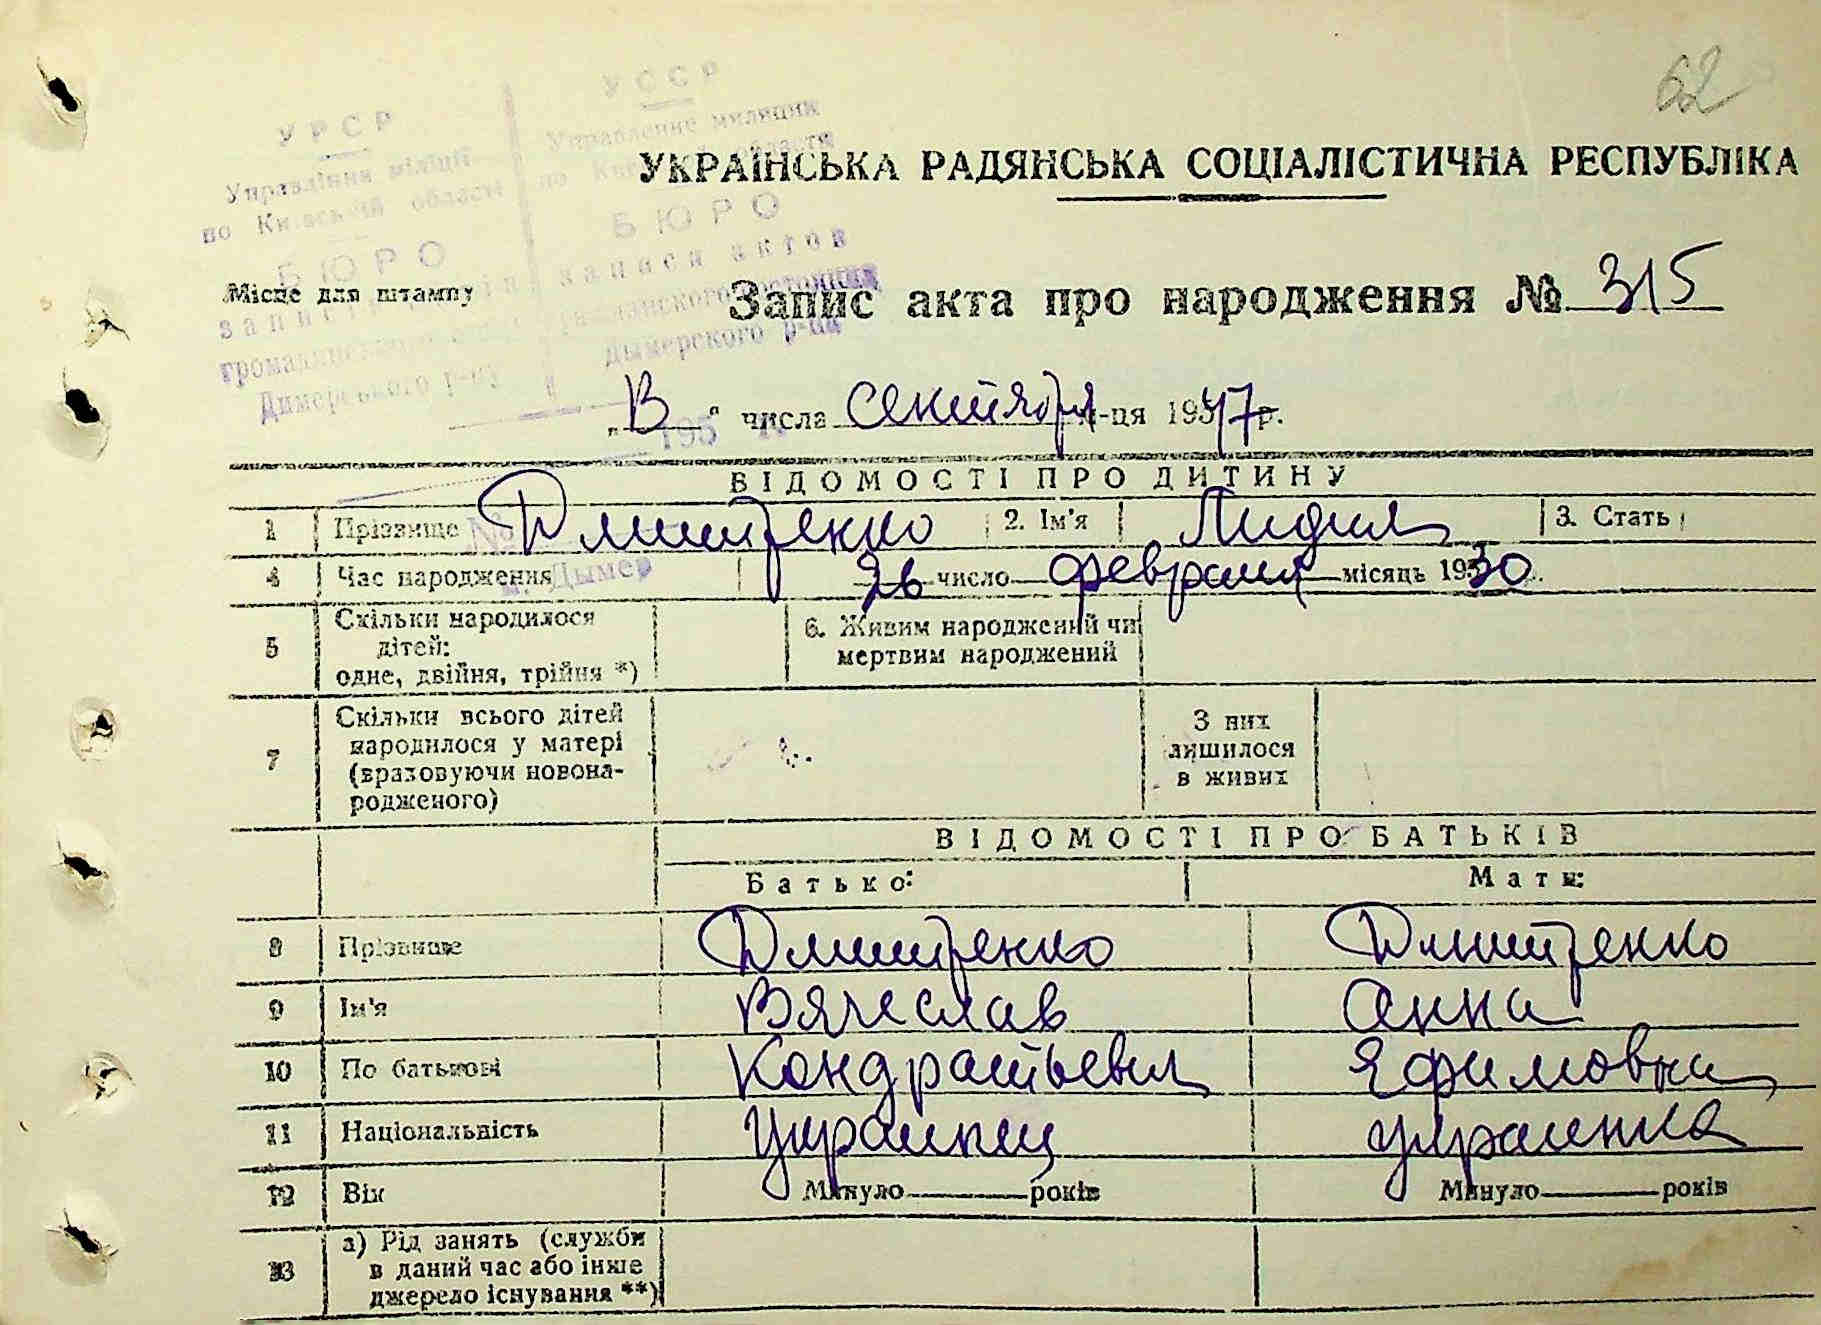 62
УРСР
Управління міліції
по Київській області
БЮРО
УССР
Управление милиции
БЮРО
записи актов
Дымерского р-на
УКРАЇНСЬКА РАДЯНСЬКА СОЦІАЛІСТИЧНА РЕСПУБЛІКА
Місце для штампу
Запис акта про народження № 315
числа сентября м-ця 1947 р.
ВІДОМОСТІ ПРО ДИТИНУ
1 Прізвище Дмитренко 2. Ім'я Лидия 3. Стать
4 Час народження 26 число февраля місяць 1930
Дымер
5 Скільки народилося дітей: одне, двійня, трійня *) 6. Живим народжений чи мертвим народжений
7 Скільки всього дітей народилося у матері (враховуючи новона-родженого) З них лишилося в живих
ВІДОМОСТІ ПРО БАТЬКІВ
Батько: Мати:
8 Прізвище Дмитренко Дмитренко
9 Ім'я Вячеслав Анна
10 По батькові Кондратьевич Ефимовна
11 Національність Украинец Украинка
12 Вік Минуло років Минуло років
13 а) Рід занять (служби в даний час або інше джерело існування **)